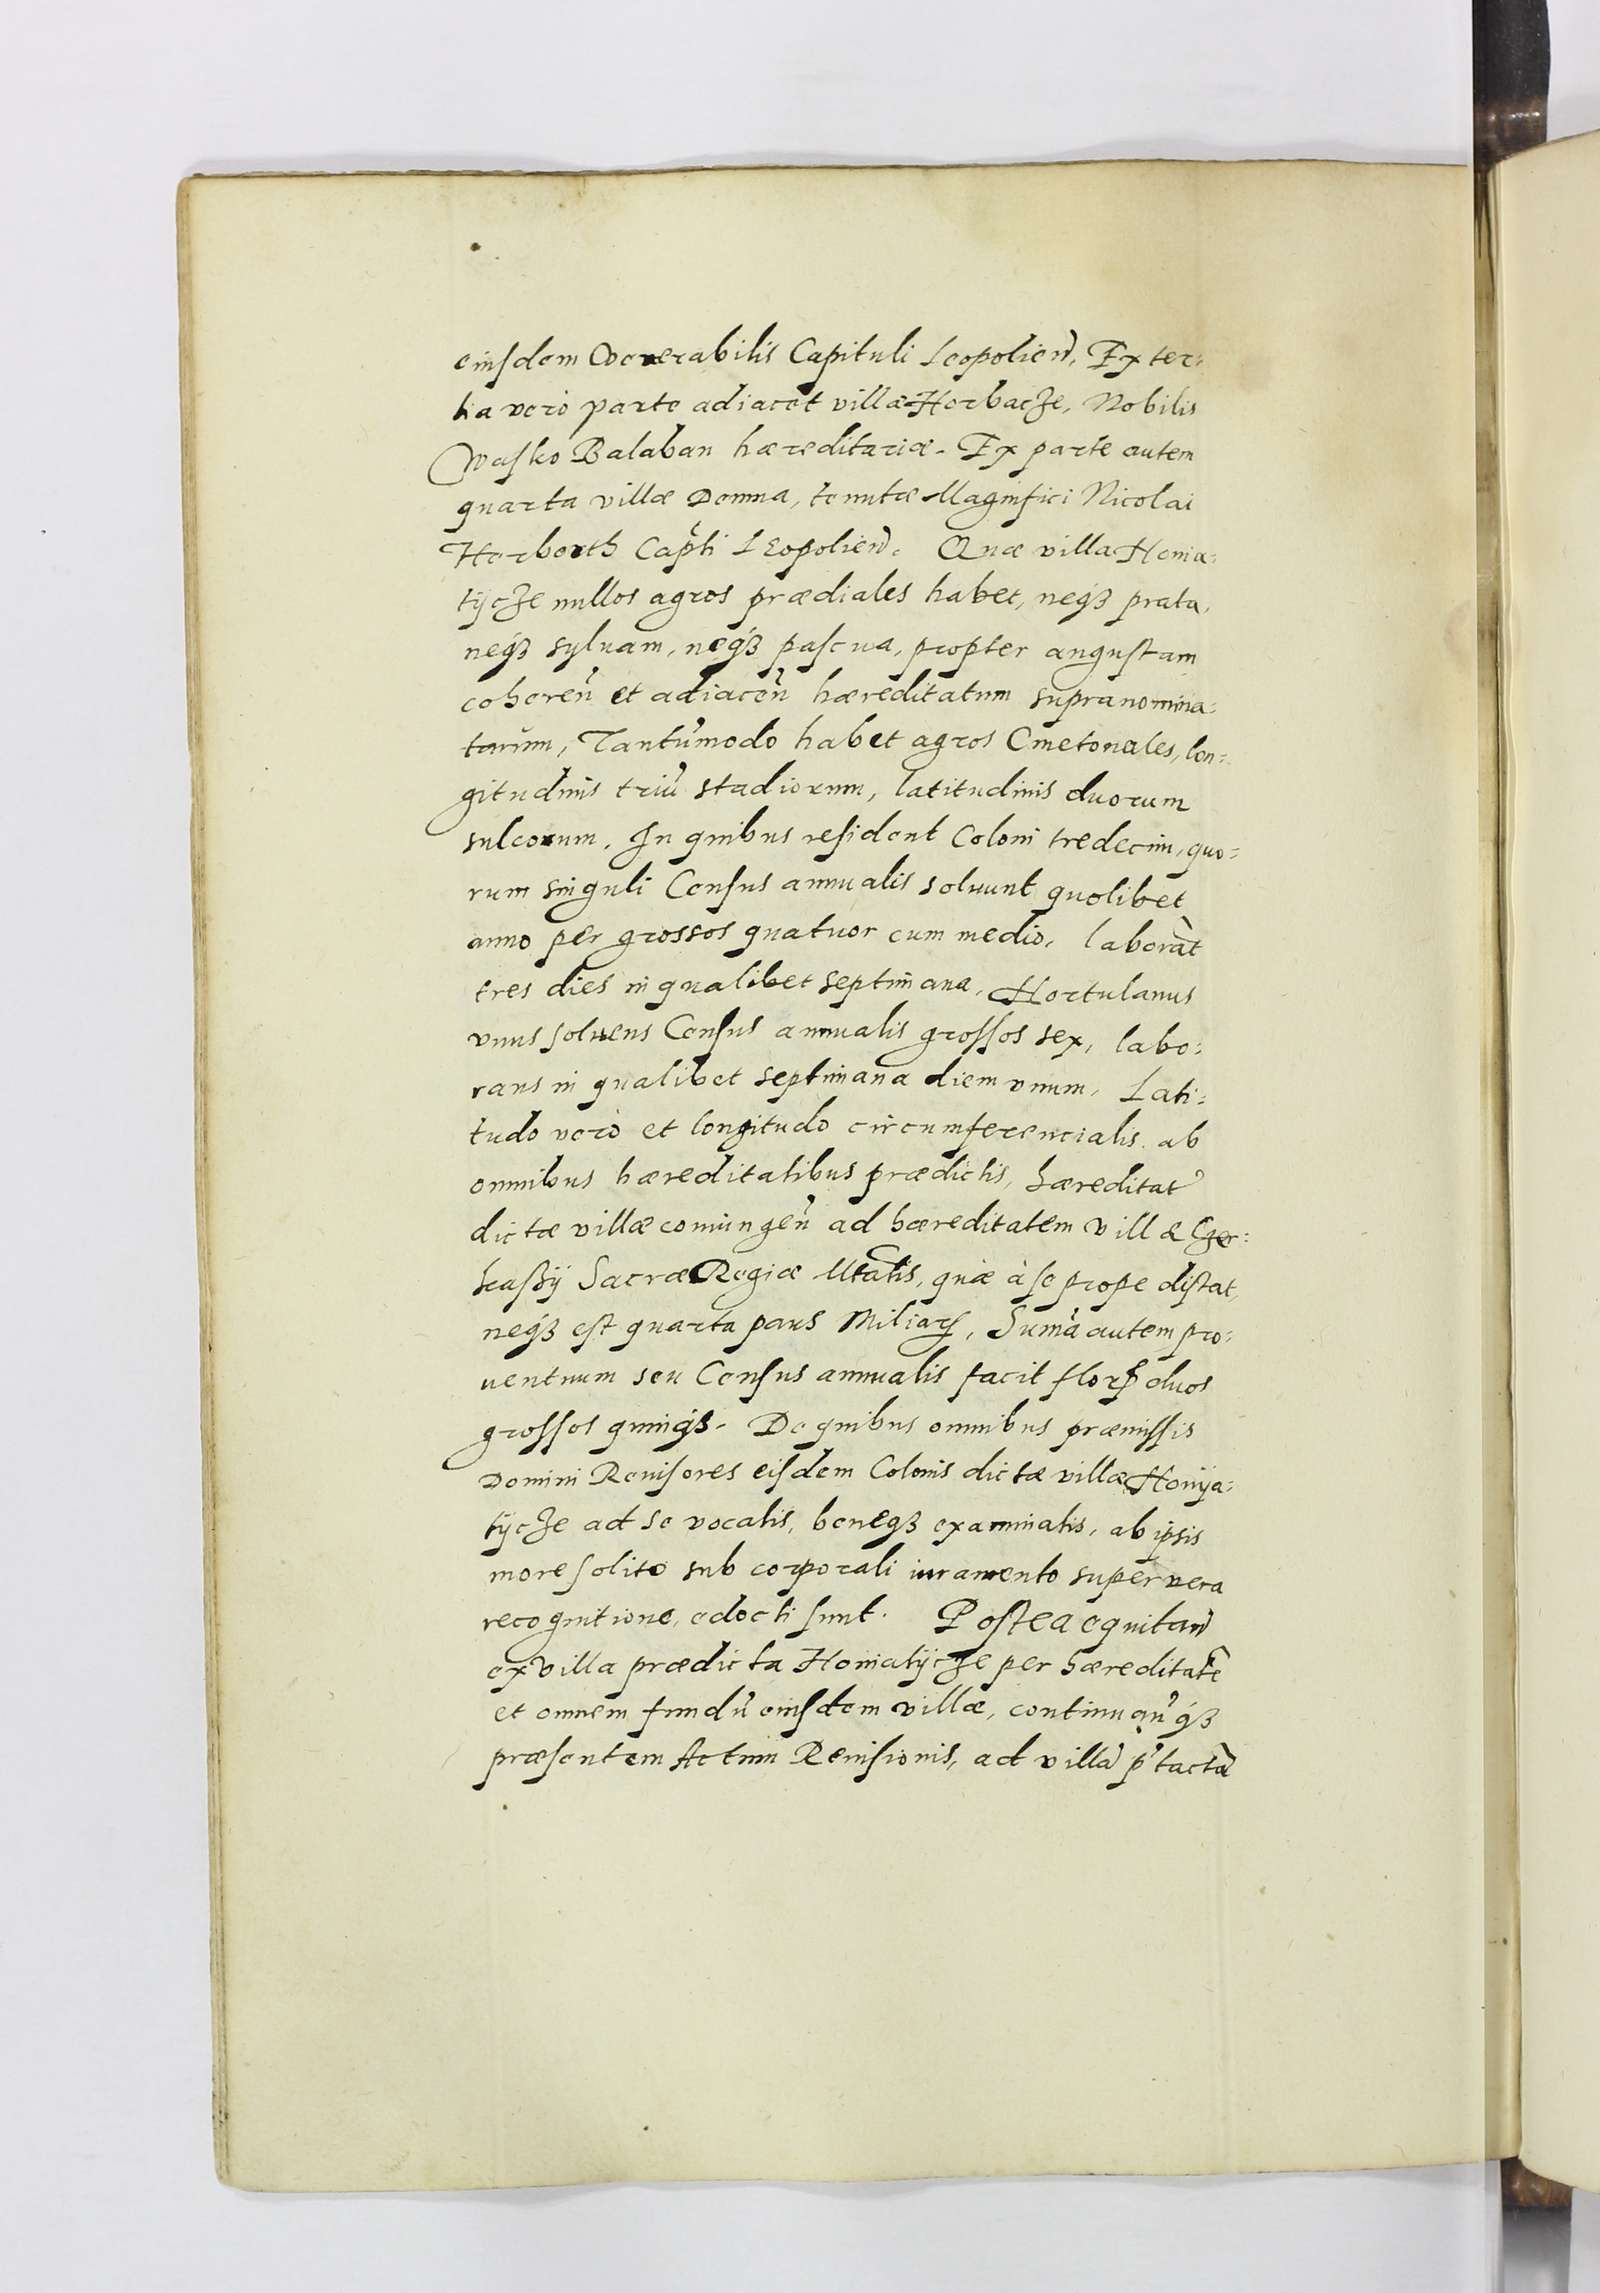 eiusdem Venerabilis Capituli Leopolien̄. Ex ter:
tia verò parte adiacet villæ Horbacze, Nobilis
Wasko Balaban hæreditariæ. Ex parte autem
quarta villæ Domna, tenutæ Magnifici Nicolai
Herborth Cap̄ti Leopolien̄. Quæ villa Honia:
tÿcze nullos agros prædiales habet, neqꝫ prata,
neqꝫ syluam, neqꝫ pascua, propter angustam
coheren̄ et adiacen̄ hæreditatum supranomina:
tarum, Tantūmodo habet agros Cmetonales, lon:
gitudinis triū stadiorum, latitudinis duorum
sulcorum. In quibus resident Coloni tredecim, quo:
rum singuli Census annualis soluunt quolibet
anno per grossos quatuor cum medio, laborāt
tres dies in qualibet septimana, Hortulanus
vnus soluens Census annualis grossos sex, labo:
rans in qualibet septimana diem vnum, Lati:
tudo verò et longitudo circumferencialis ab
omnibus hæreditatibus prædictis, hæreditat̉
dictæ villæ coniungen̄ ad hæreditatem villæ Czer:
kassÿ Sacræ Regiæ Mtatis, quæ à se prope distat,
neqꝫ est quarta pars Miliarꝭ, Sumā autem pro:
uentuum seu Census annualis facit florꝭ duos
grossos quinqꝫ. De quibus omnibus præmissis
Domini Reuisores eisdem Colonis dictæ villæ Honÿa:
tÿcze ad se vocatis, beneqꝫ examinatis, ab ipsis
more solito sub corporali iuramento super vera
recognitione, edocti sunt. Postea equitan̄
ex villa prædicta Honiatÿcze per hæreditatē
et omnem fundū eiusdem villæ, continuan̄qꝫ
præsentem Actum Reuisionis, ad villā p̄tactā